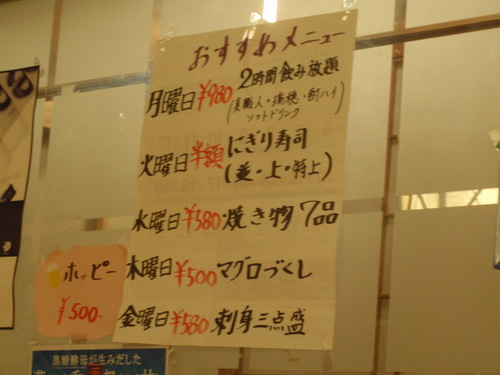 おすすめメニュー
月曜日 ¥980 2時間飲み放題
ソフトドリンク
火曜日 半額 にぎり寿司
(並・上・特上)
水曜日 ¥580 焼き物7品
木曜日 ¥500 マグロづくし
金曜日 ¥580 刺身三点盛
ホッピー
¥500-
黒糖酵母が生みだした